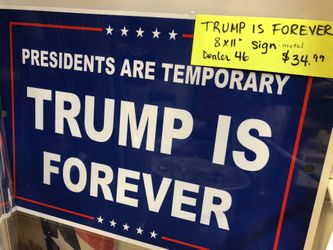 TRUMP IS FOREVER
8x11" Sign - metal
Dealer 46 $34.99
PRESIDENTS ARE TEMPORARY
TRUMP IS
FOREVER